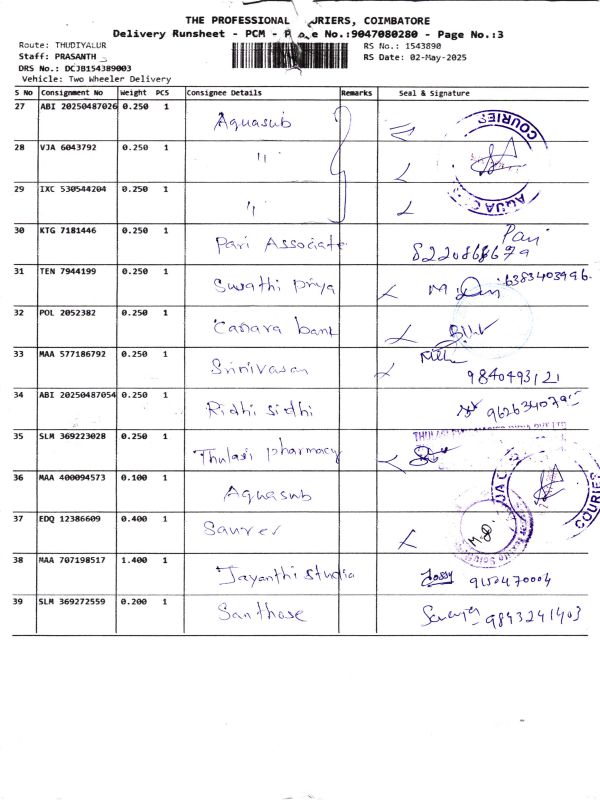 THE PROFESSIONAL URIERS, COIMBATORE
Delivery Runsheet - PCM - P e No.:9047080280 - Page No.:3
Route: THUDIYALUR
RS No.: 1543890
Staff: PRASANTH
RS Date: 02-May-2025
DRS No.: DCJB154389003
Vehicle: Two Wheeler Delivery
S No Consignment No Weight PCS Consignee Details Remarks Seal & Signature
27 ABI 20250487026 0.250 1 Aquasub
COURIES
28 VJA 6043792 0.250 1 "
29 IXC 530544204 0.250 1 "
AQUA
30 KTG 7181446 0.250 1 Pari Associate Pari
31 TEN 7944199 0.250 1 Swathi Priya 6383403996
32 POL 2052382 0.250 1 Canara bank
33 MAA 577186792 0.250 1 Srinivasan
9840493121
34 ABI 20250487054 0.250 1 Ridhi sidhi
35 SLM 369223028 0.250 1 Thulasi Pharmacy
36 MAA 400094573 0.100 1 Aquasub
COURIES
37 EDQ 12386609 0.400 1
38 MAA 707198517 1.400 1 Jayanthi Studio 9150470004
39 SLM 369272559 0.200 1 Santhose 9843241403